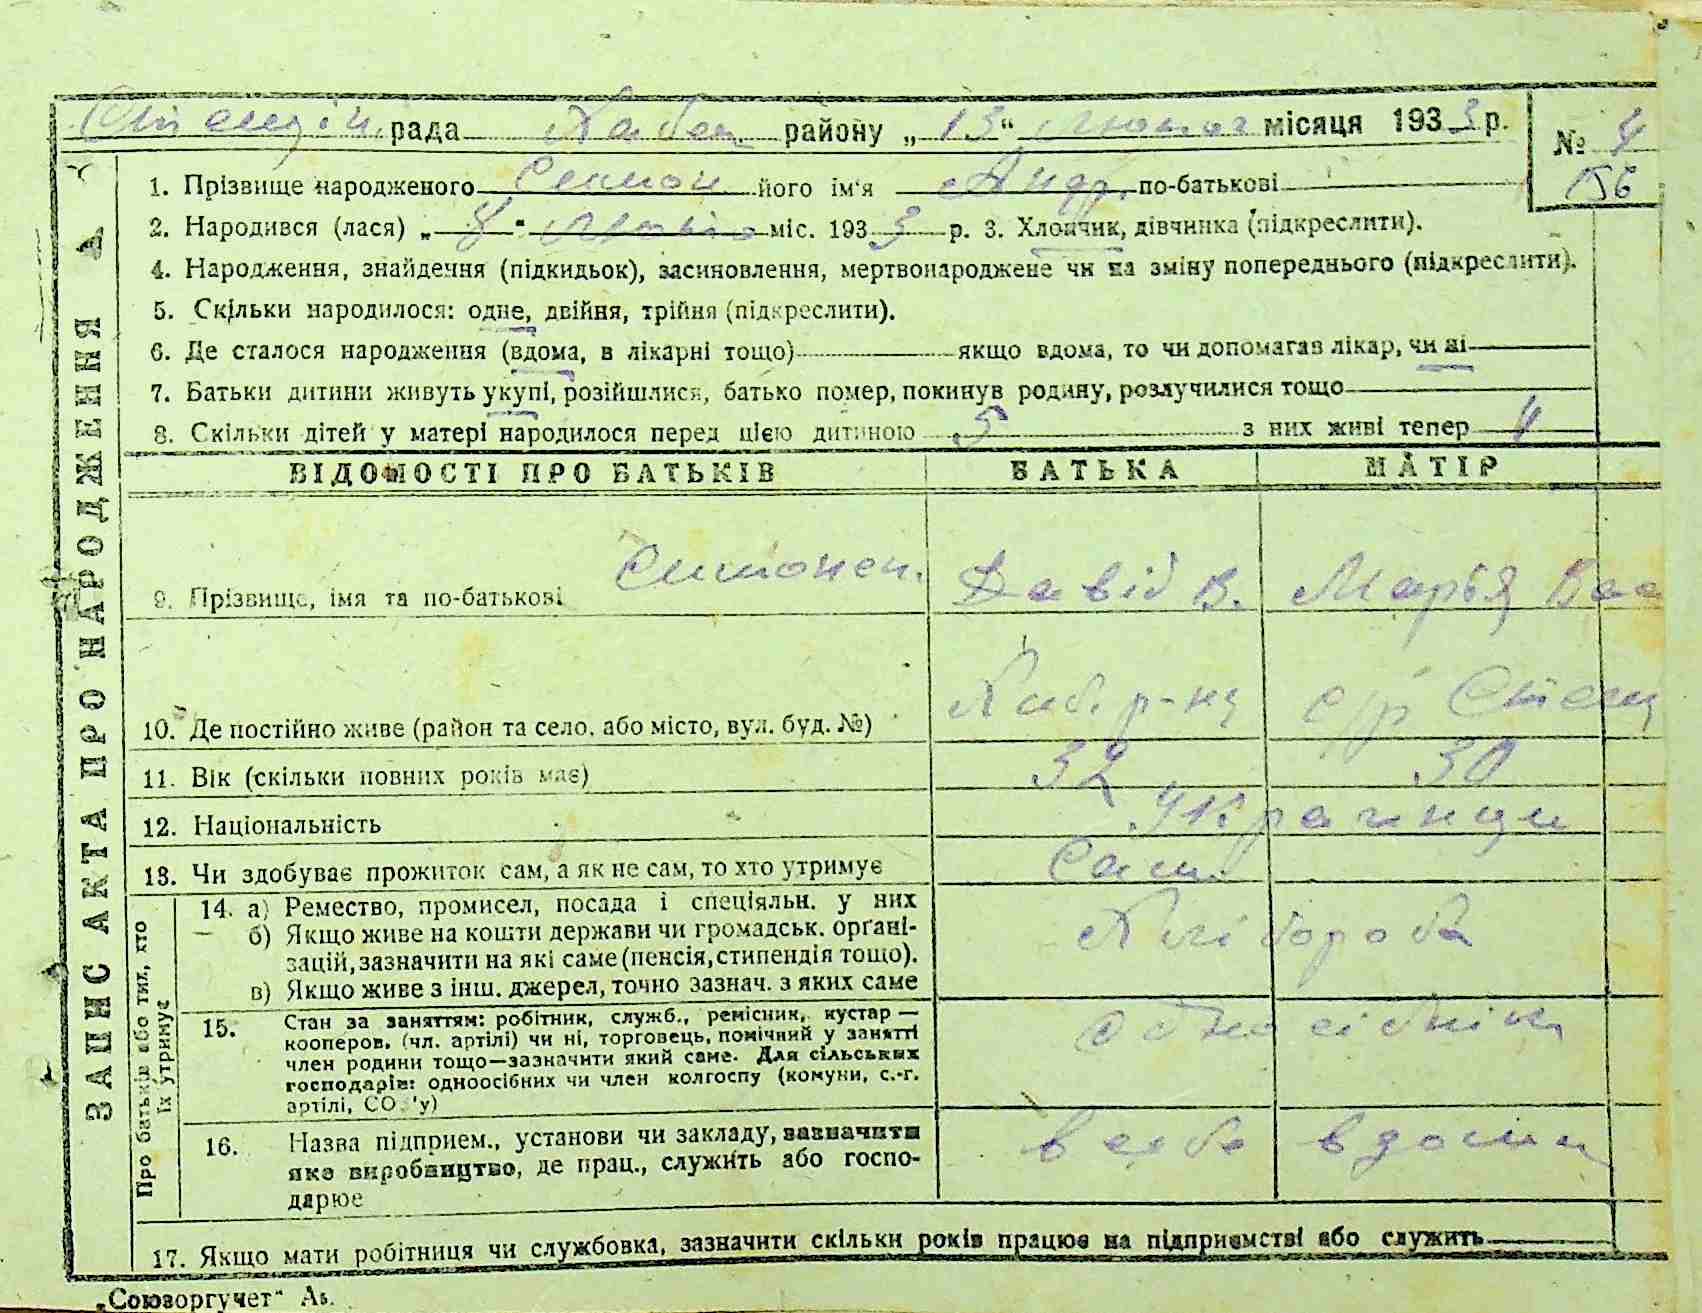 рада Хабен. району „13“ лютого місяця 1933 р.
№ 4
156
ЗАПИС АКТА ПРО НАРОДЖЕННЯ
1. Прізвище народженого Симон його ім'я Андр. по-батькові
2. Народився (лася) „8“ лютого міс. 1933 р. 3. Хлопчик, дівчинка (підкреслити).
4. Народження, знайдення (підкидьок), засиновлення, мертвонароджене чи на зміну попереднього (підкреслити).
5. Скільки народилося: одне, двійня, трійня (підкреслити).
6. Де сталося народження (вдома, в лікарні тощо) якщо вдома, то чи допомагав лікар, чи ні
7. Батьки дитини живуть укупі, розійшлися, батько помер, покинув родину, розлучилися тощо
8. Скільки дітей у матері народилося перед цією дитиною 5 з них живі тепер 4
ВІДОМОСТІ ПРО БАТЬКІВ БАТЬКА МАТІР
9. Прізвище, імя та по-батькові Симонен. Давід В. Марья Вас
10. Де постійно живе (район та село, або місто, вул. буд. №) Хаб. р-ну с/р Стещ
11. Вік (скільки повних років має) 32 30
12. Національність Українци
13. Чи здобуває прожиток сам, а як не сам, то хто утримує Сам
Про батьків або тих, хто їх утримує
14. а) Ремество, промисел, посада і спеціяльн. у них Хлібороба
б) Якщо живе на кошти держави чи громадськ. орґані-
зацій, зазначити на які саме (пенсія, стипендія тощо).
в) Якщо живе з інш. джерел, точно зазнач. з яких саме
15. Стан за заняттям: робітник, служб., ремісник, кустар — одноосібнік
кооперов. (чл. артілі) чи ні, торговець, помічний у занятті
член родини тощо—зазначити який саме. Для сільських
господарів: одноосібних чи член колгоспу (комуни, с.-г.
артілі, СО 'у)
16. Назва підприєм., установи чи закладу, зазначити в себе вдома
яке виробництво, де прац., служить або госпо-
дарює
17. Якщо мати робітниця чи службовка, зазначити скільки років працює на підприємстві або служить
„Союзоргучет“